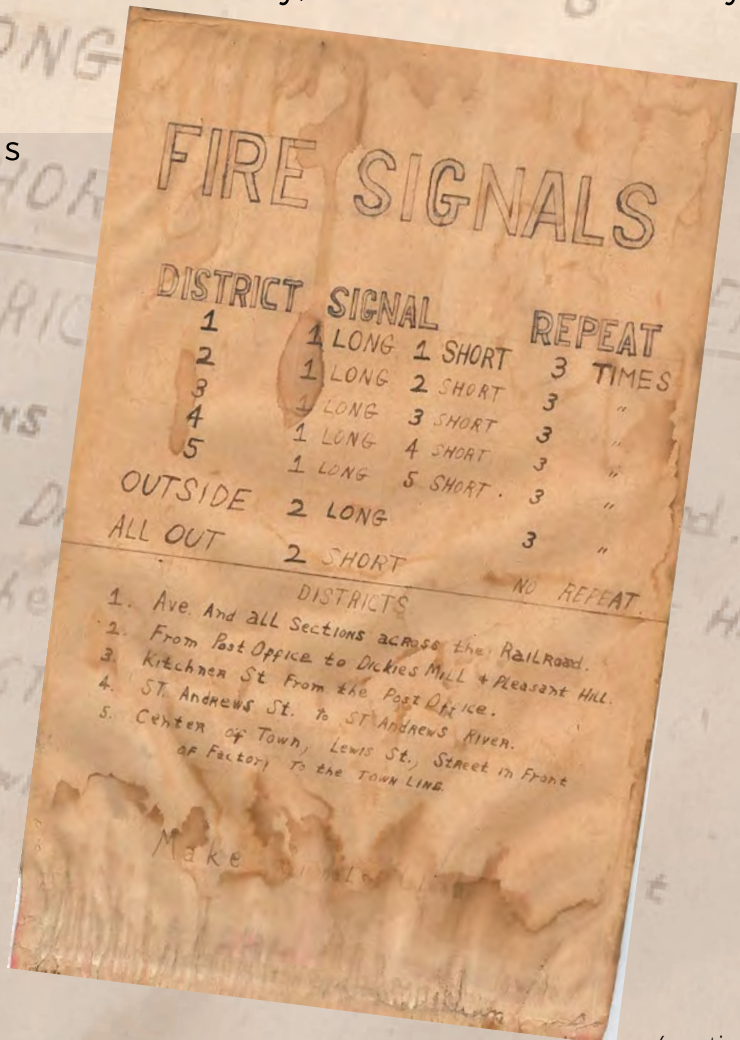 FIRE SIGNALS
DISTRICT SIGNAL REPEAT
1 1 LONG 1 SHORT 3 TIMES
2 1 LONG 2 SHORT 3 "
3 1 LONG 3 SHORT 3 "
4 1 LONG 4 SHORT 3 "
5 1 LONG 5 SHORT. 3 "
OUTSIDE 2 LONG 3 "
ALL OUT 2 SHORT NO REPEAT.
DISTRICTS
1. Ave. And all Sections across the RailRoad.
2. From Post Office to Dickies Mill + Pleasant Hill.
3. Kitchner St From the Post Office.
4. ST. Andrews St. To ST Andrews River.
5. Center of Town, Lewis St., Street in Front
of Factory To the TOWN LINE.
Make